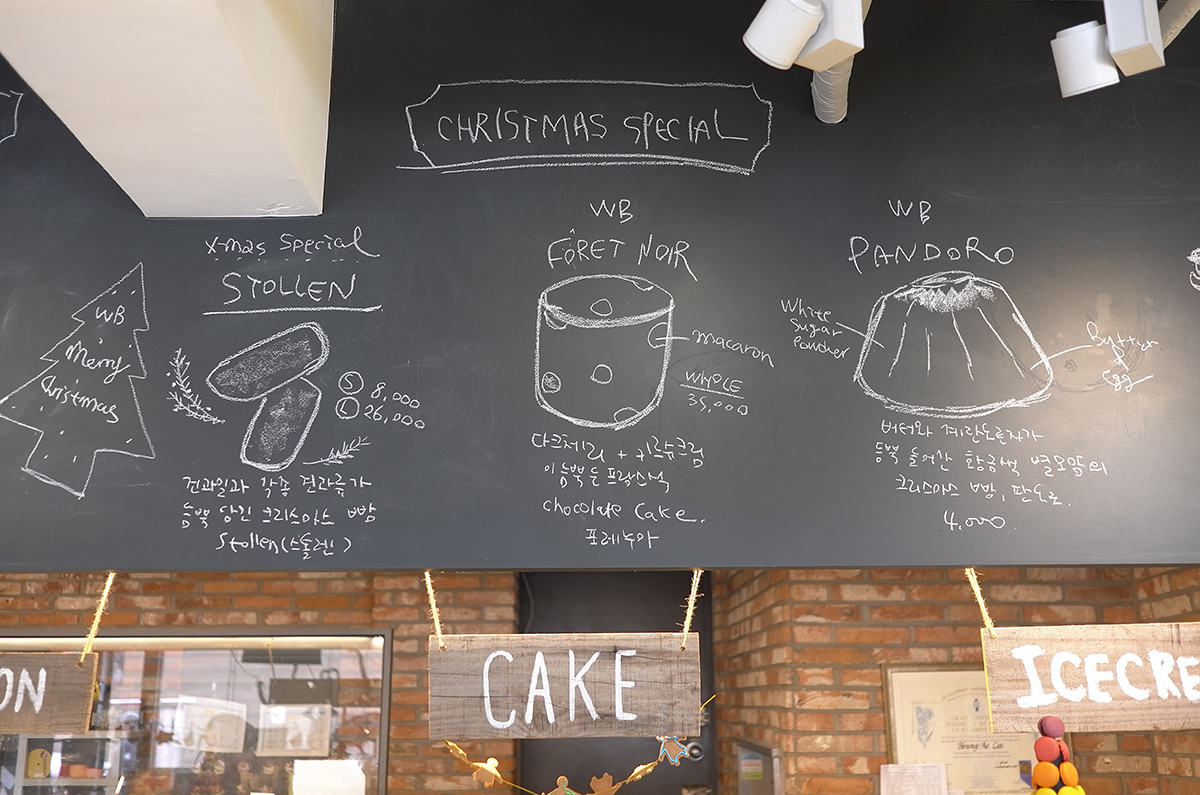 CHRISTMAS SPECIAL
WB
Merry
Christmas
X-mas Special
STOLLEN
S 8,000
L 26,000
건과일과 각종 견과류가
듬뿍 담긴 크리스마스 빵
Stollen(스톨렌)
WB
FÔRET NOIR
macaron
WHOLE
35,000
다크체리 + 키르슈크림
이 듬뿍 든 프랑스식
chocolate Cake.
포레누아
WB
PANDORO
White
Sugar
Powder
Butter
&
Egg
버터와 계란노른자가
듬뿍 들어간 황금색 별모양의
크리스마스 빵, 판도로.
4,000
ON
CAKE
ICECRE